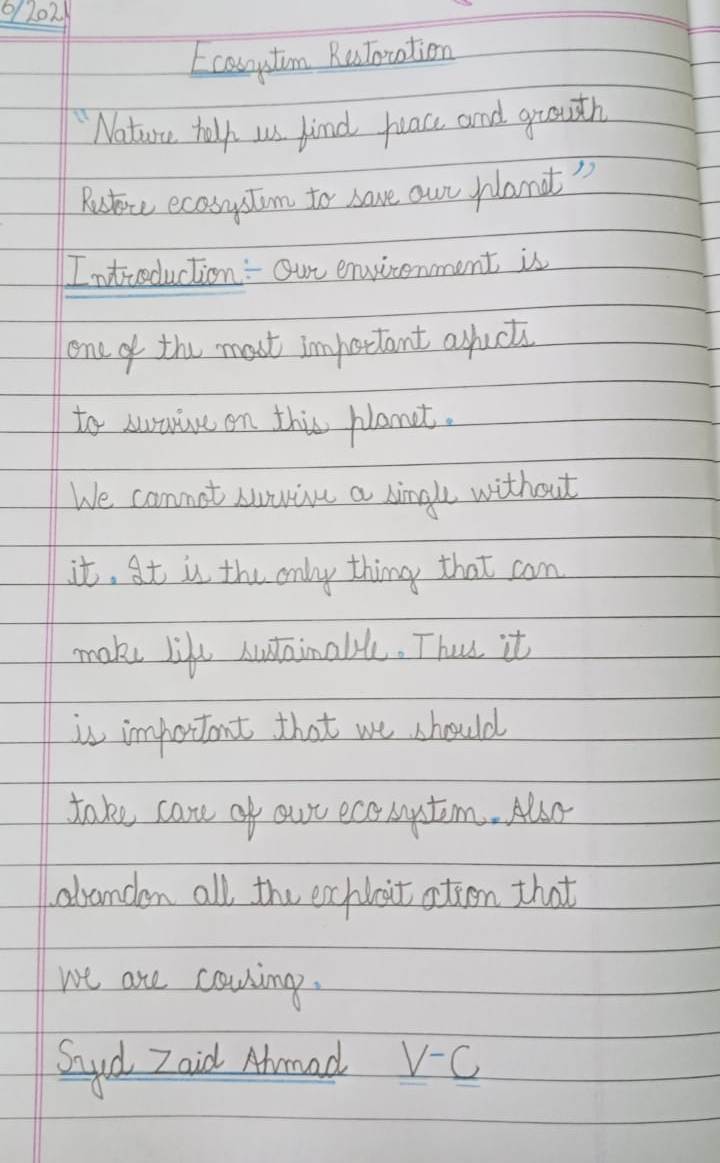 6/2021
Ecosystem Restoration
"Nature help us find peace and growth
Restore ecosystem to save our planet"
Introduction:- Our environment is
one of the most important aspects
to survive on this planet.
We cannot survive a single without
it. It is the only thing that can
make life sustainable. Thus it
is important that we should
take care of our ecosystem. Also
abandon all the exploit ation that
we are cousing.
Syed Zaid Ahmad V-C